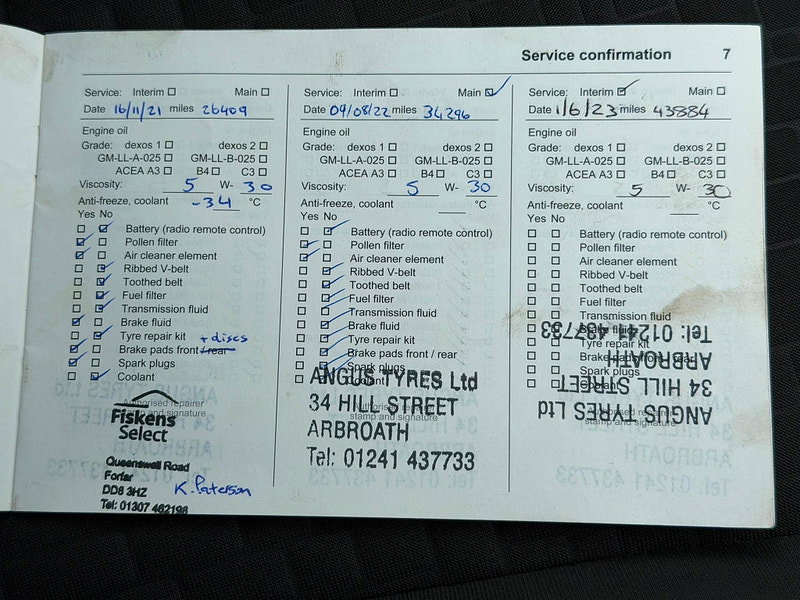 Service confirmation 7
Service: Interim Main
Date 16/11/21 miles 26409
Engine oil
Grade: dexos 1 dexos 2
GM-LL-A-025 GM-LL-B-025
ACEA A3 B4 C3
Viscosity: 5 W- 30
Anti-freeze, coolant -34 °C
Yes No
Battery (radio remote control)
Pollen filter
Air cleaner element
Ribbed V-belt
Toothed belt
Fuel filter
Transmission fluid
Brake fluid
Tyre repair kit + discs
Brake pads front / rear
Spark plugs
Coolant
Authorised repairer
stamp and signature
Fiskens
Select
Queenswell Road
Forfar
DD8 3HZ K. Paterson
Tel: 01307 462198
Service: Interim Main
Date 09/08/22 miles 34296
Engine oil
Grade: dexos 1 dexos 2
GM-LL-A-025 GM-LL-B-025
ACEA A3 B4 C3
Viscosity: 5 W- 30
Anti-freeze, coolant °C
Yes No
Battery (radio remote control)
Pollen filter
Air cleaner element
Ribbed V-belt
Toothed belt
Fuel filter
Transmission fluid
Brake fluid
Tyre repair kit
Brake pads front / rear
Spark plugs
Coolant
ANGUS TYRES Ltd
34 HILL STREET
stamp and signature
ARBROATH
Tel: 01241 437733
Service: Interim Main
Date 1/6/23 miles 43884
Engine oil
Grade: dexos 1 dexos 2
GM-LL-A-025 GM-LL-B-025
ACEA A3 B4 C3
Viscosity: 5 W- 30
Anti-freeze, coolant °C
Yes No
Battery (radio remote control)
Pollen filter
Air cleaner element
Ribbed V-belt
Toothed belt
Fuel filter
Transmission fluid
Brake fluid
Tyre repair kit
Brake pads front / rear
Spark plugs
Coolant
Authorised repairer
stamp and signature
ANGUS TYRES Ltd
34 HILL STREET
ARBROATH
Tel: 01241 437733